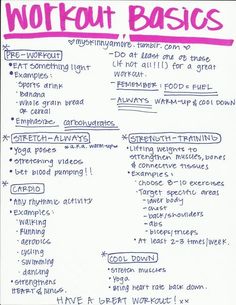 WORKOUT BASICS
♡ myskinnyamore.tumblr.com ♡
* PRE-WORKOUT
• EAT something light
• Examples:
- Sports drink
- Banana
- Whole grain bread
or cereal
• Emphasize carbohydrates
- Do at least one of these
(if not all!!!) for a great
workout.
- REMEMBER: FOOD = FUEL
- ALWAYS warm-up & cool down
* STRETCH-ALWAYS
a.k.a. warm-up
• Yoga poses
• Stretching videos
• Get blood pumping!!
* CARDIO
• Any rhythmic activity
• Examples:
- Walking
- Running
- aerobics
- cycling
- swimming
- dancing
• Strengthens
HEART & lungs.
* STRENGTH-TRAINING
• Lifting weights to
strengthen muscles, bones
& connective tissues
• Examples:
- choose 8-10 exercises
- Target specific areas
- lower body
- chest
- back/shoulders
- abs
- biceps/triceps
• At least 2-3 times/week.
* COOL DOWN
• Stretch muscles
• Yoga
• Bring heart rate back down.
HAVE A GREAT WORKOUT! xx